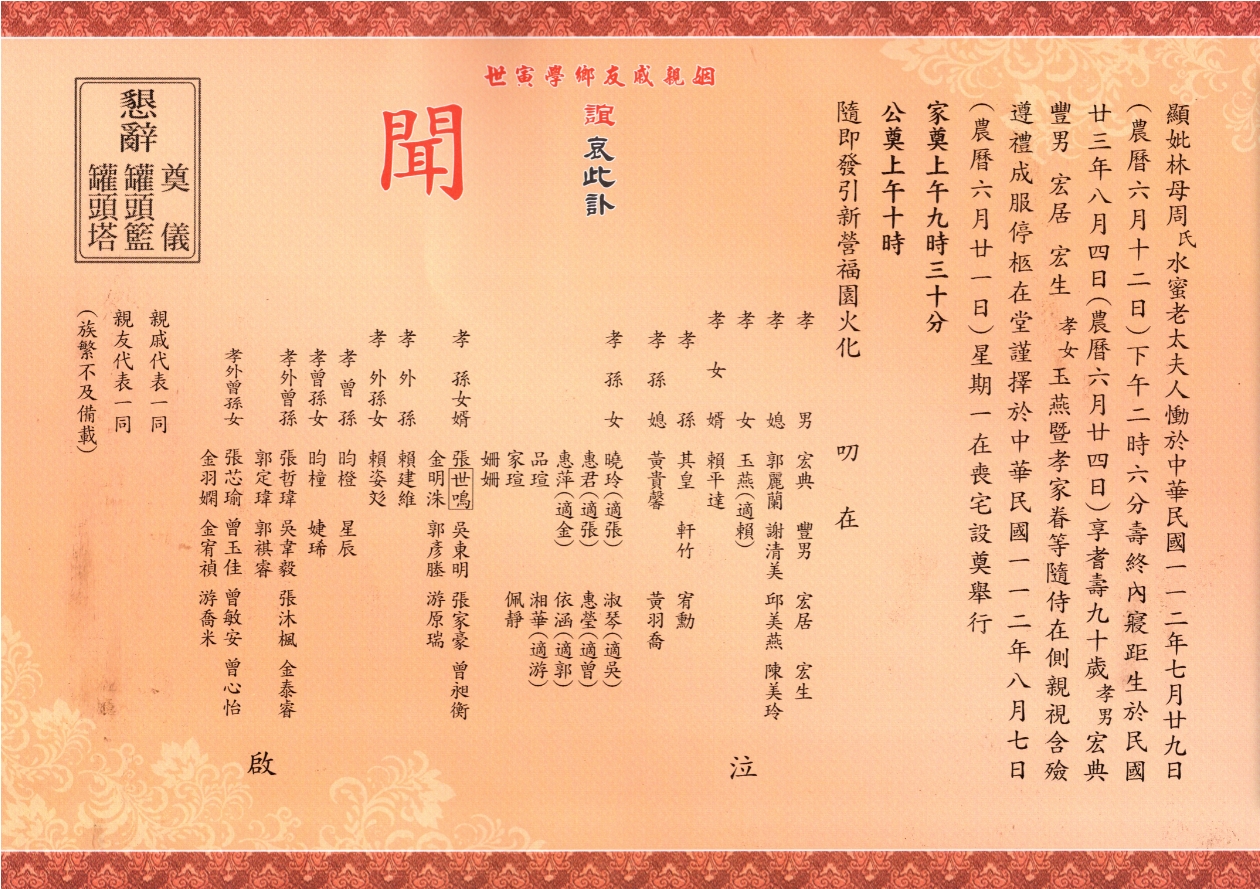 顯妣林母周氏水蜜老太夫人慟於中華民國一一二年七月廿九日
(農曆六月十二日)下午二時六分壽終內寢距生於民國
廿三年八月四日(農曆六月廿四日)享耆壽九十歲孝男宏典
豐男 宏居 宏生 孝女玉燕暨孝家眷等隨侍在側親視含殮
遵禮成服停柩在堂謹擇於中華民國一一二年八月七日
(農曆六月廿一日)星期一在喪宅設奠舉行
家奠上午九時三十分
公奠上午十時
隨即發引新營福園火化 叨在
世寅學鄉友戚親姻
誼
哀此訃
聞
孝男 宏典 豐男 宏居 宏生 泣
孝媳 郭麗蘭 謝清美 邱美燕 陳美玲
孝女 玉燕(適賴)
孝女婿 賴平達
孝孫 其皇 軒竹 宥勳
孝孫媳 黃貴馨 黃羽喬
孝孫女 曉玲(適張) 淑琴(適吳)
惠君(適張) 惠瑩(適曾)
惠萍(適金) 依涵(適郭)
品瑄 湘華(適游)
家瑄 佩靜
姍姍
孝孫女婿 張世鳴 吳東明 張家豪 曾昶衡
金明洙 郭彥塍 游原瑞
孝外孫 賴建維
孝外孫女 賴姿彣
孝曾孫 昀橙 星辰
孝曾孫女 昀橦 婕琋
孝外曾孫 張哲瑋 吳韋毅 張沐楓 金泰睿
郭定瑋 郭祺睿
孝外曾孫女 張芯瑜 曾玉佳 曾敏安 曾心怡 啟
金羽嫻 金宥禎 游喬米
親戚代表一同
親友代表一同
(族繁不及備載)
懇辭
奠儀
罐頭籃
罐頭塔